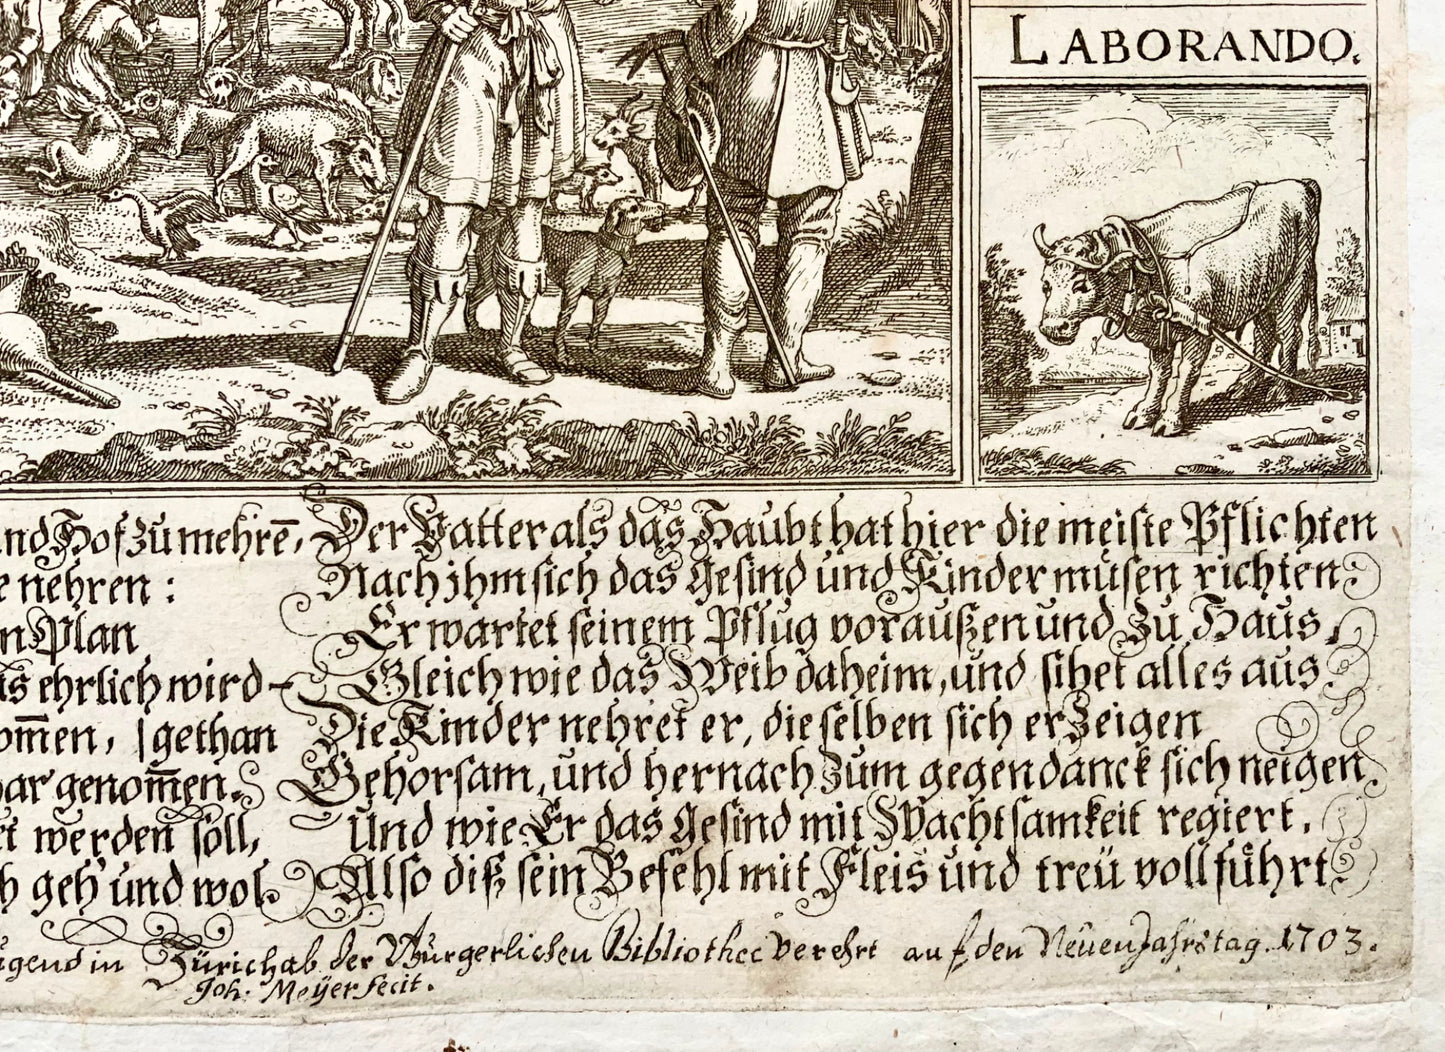 LABORANDO.
und Hof zu mehrē,
nehren:
Plan
ehrlich wird
om̅en, | gethan
genom̅en.
werden soll,
geh' und wol.
Der Vatter als das Haubt hat hier die meiste Pflichten
Nach jhm sich das Gesind und Kinder müsen richten
Er wartet seinem Pflug voraußen und zu Haus,
Gleich wie das Weib daheim, und sihet alles aus.
Die Kinder nehret er, dieselben sich erzeigen
Gehorsam, und hernach zum gegendanck sich neigen.
Und wie Er das Gesind mit Wachtsamkeit regiert,
Also diß sein Befehl mit Fleis und treü vollführt.
ugend in Zürich ab der Burgerlichen Bibliothec verehrt auf den Neüen Jahrstag. 1703.
Joh: Meÿer fecit.